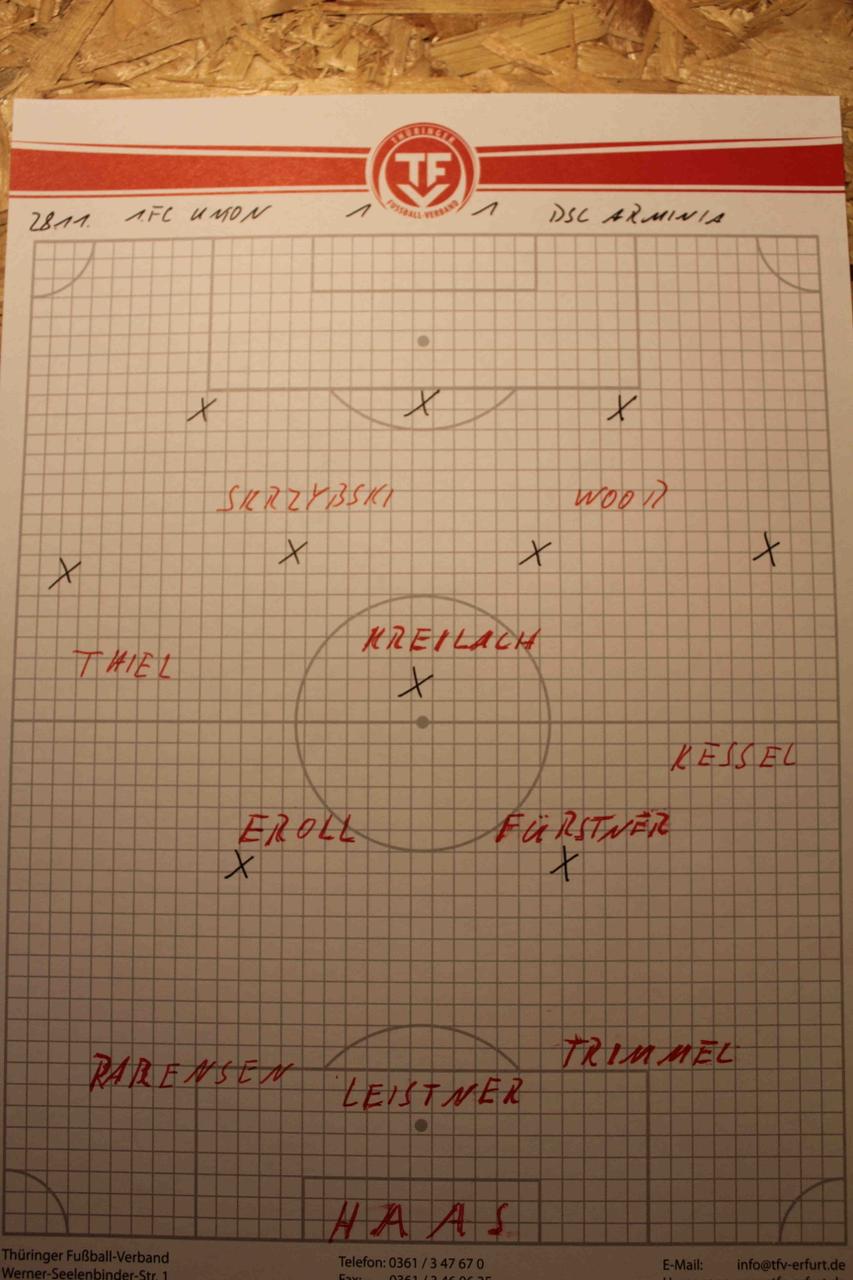 THÜRINGER
TF
FUSSBALL-VERBAND
28.11. 1.FC UNION 1 1 DSC ARMINIA
X X X
SKRZYBSKI WOOD
X X X X
KREILACH
THIEL
X
KESSEL
EROLL FÜRSTNER
X X
TRIMMEL
PARENSEN
LEISTNER
HAAS
Thüringer Fußball-Verband Telefon: 0361 / 3 47 67 0 E-Mail: info@tfv-erfurt.de
Werner-Seelenbinder-Str. 1